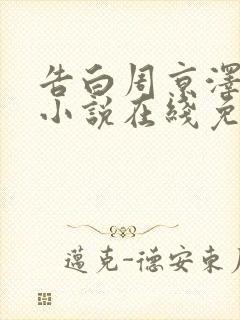 告白周京澤
小說在綫免
邁克-德安東尼